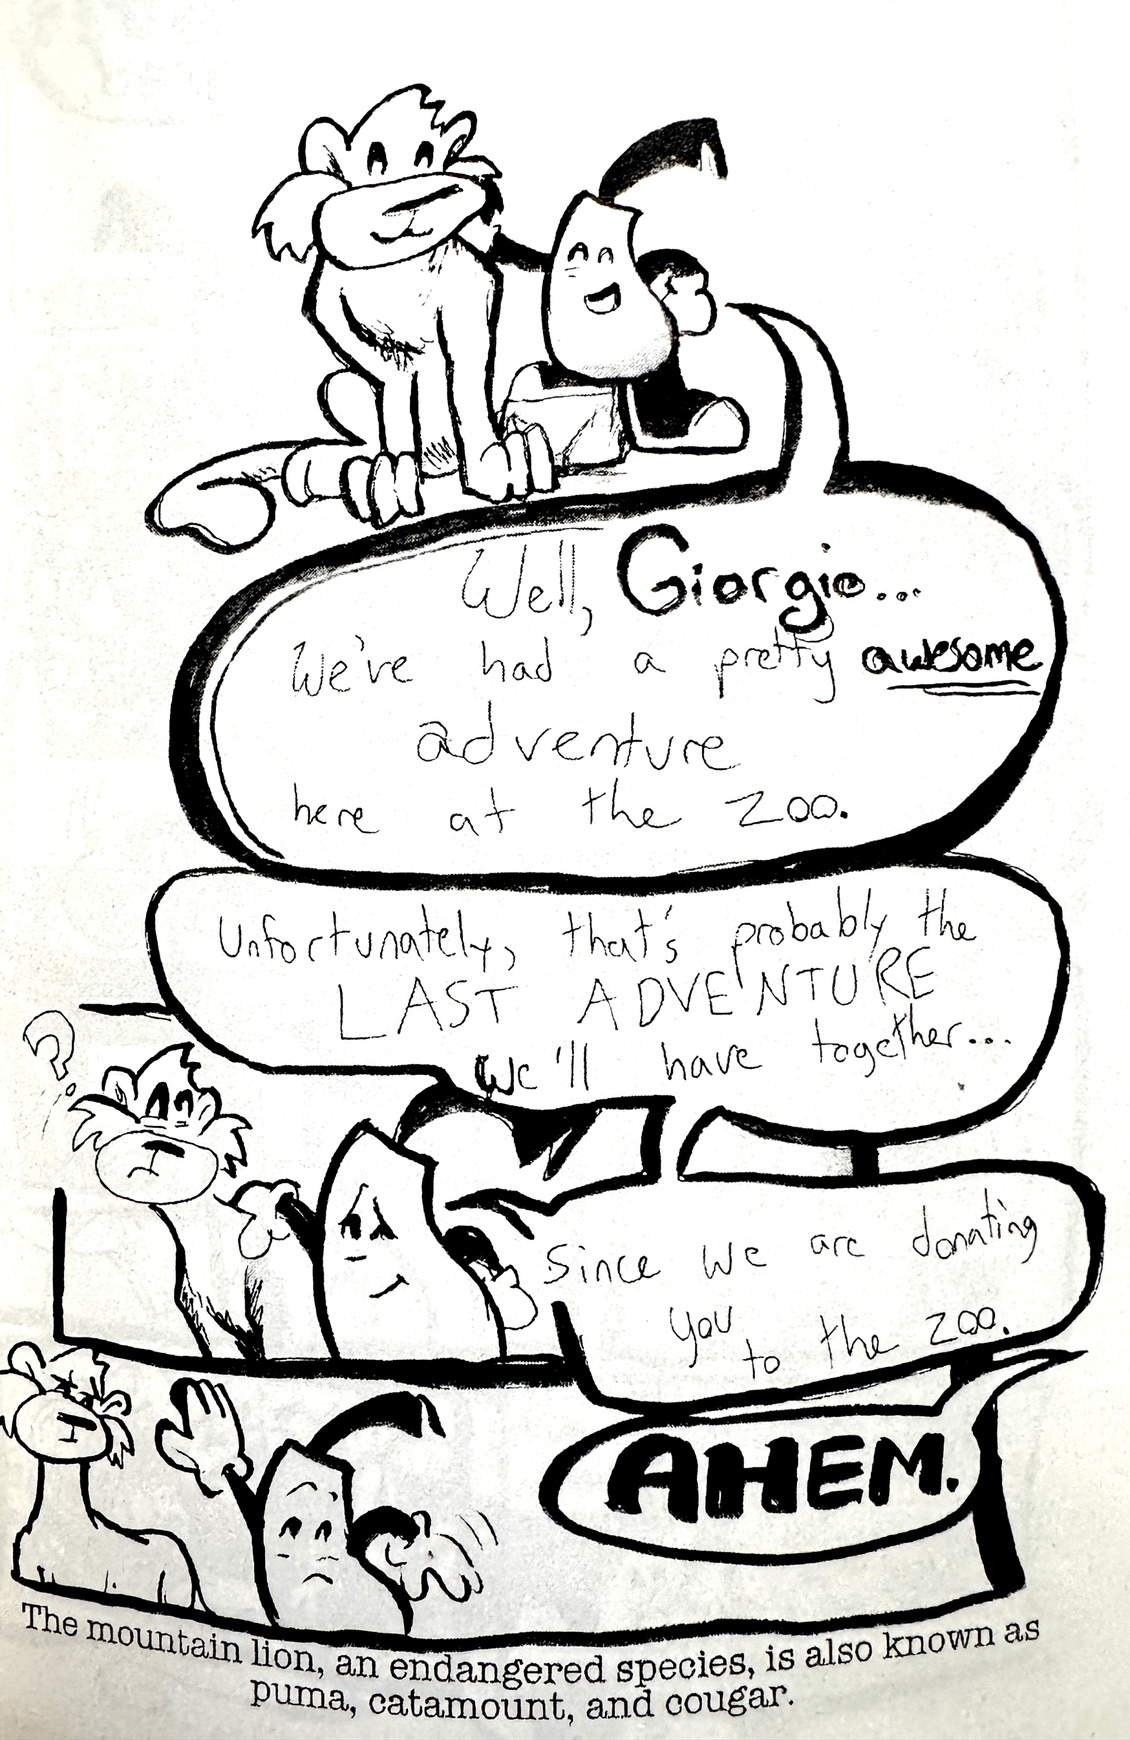 Well, Giorgio...
We've had a pretty awesome
adventure
here at the zoo.
Unfortunately, that's probably the
LAST ADVENTURE
we'll have together...
?
Since we are donating
you to the zoo.
AHEM.
The mountain lion, an endangered species, is also known as
puma, catamount, and cougar.